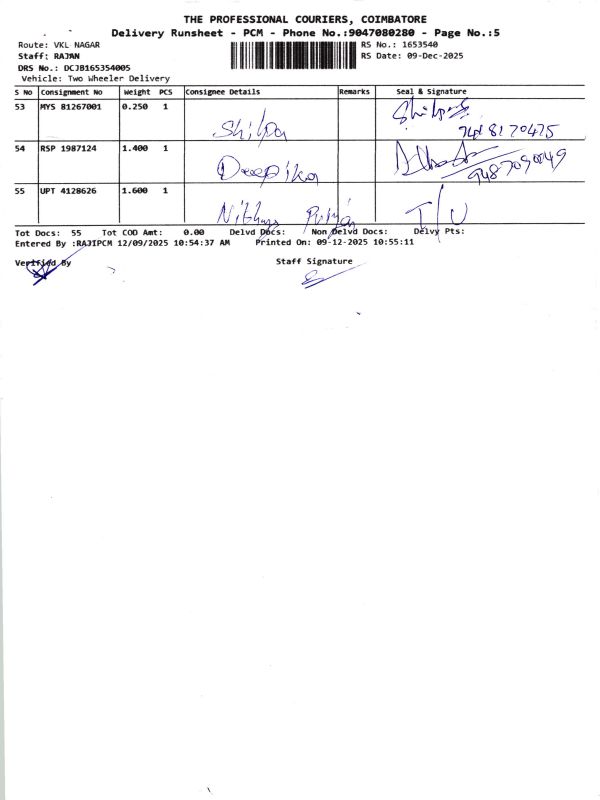 THE PROFESSIONAL COURIERS, COIMBATORE
Delivery Runsheet - PCM - Phone No.:9047080280 - Page No.:5
Route: VKL NAGAR RS No.: 1653540
Staff: RAJAN RS Date: 09-Dec-2025
DRS No.: DCJB165354005
Vehicle: Two Wheeler Delivery
S No Consignment No Weight PCS Consignee Details Remarks Seal & Signature
53 MYS 81267001 0.250 1 Shilpa
54 RSP 1987124 1.400 1 Deepika
55 UPT 4128626 1.600 1 Nithya
Tot Docs: 55 Tot COD Amt: 0.00 Delvd Docs: Non Delvd Docs: Delvy Pts:
Entered By :RAJIPCM 12/09/2025 10:54:37 AM Printed On: 09-12-2025 10:55:11
Verified By Staff Signature